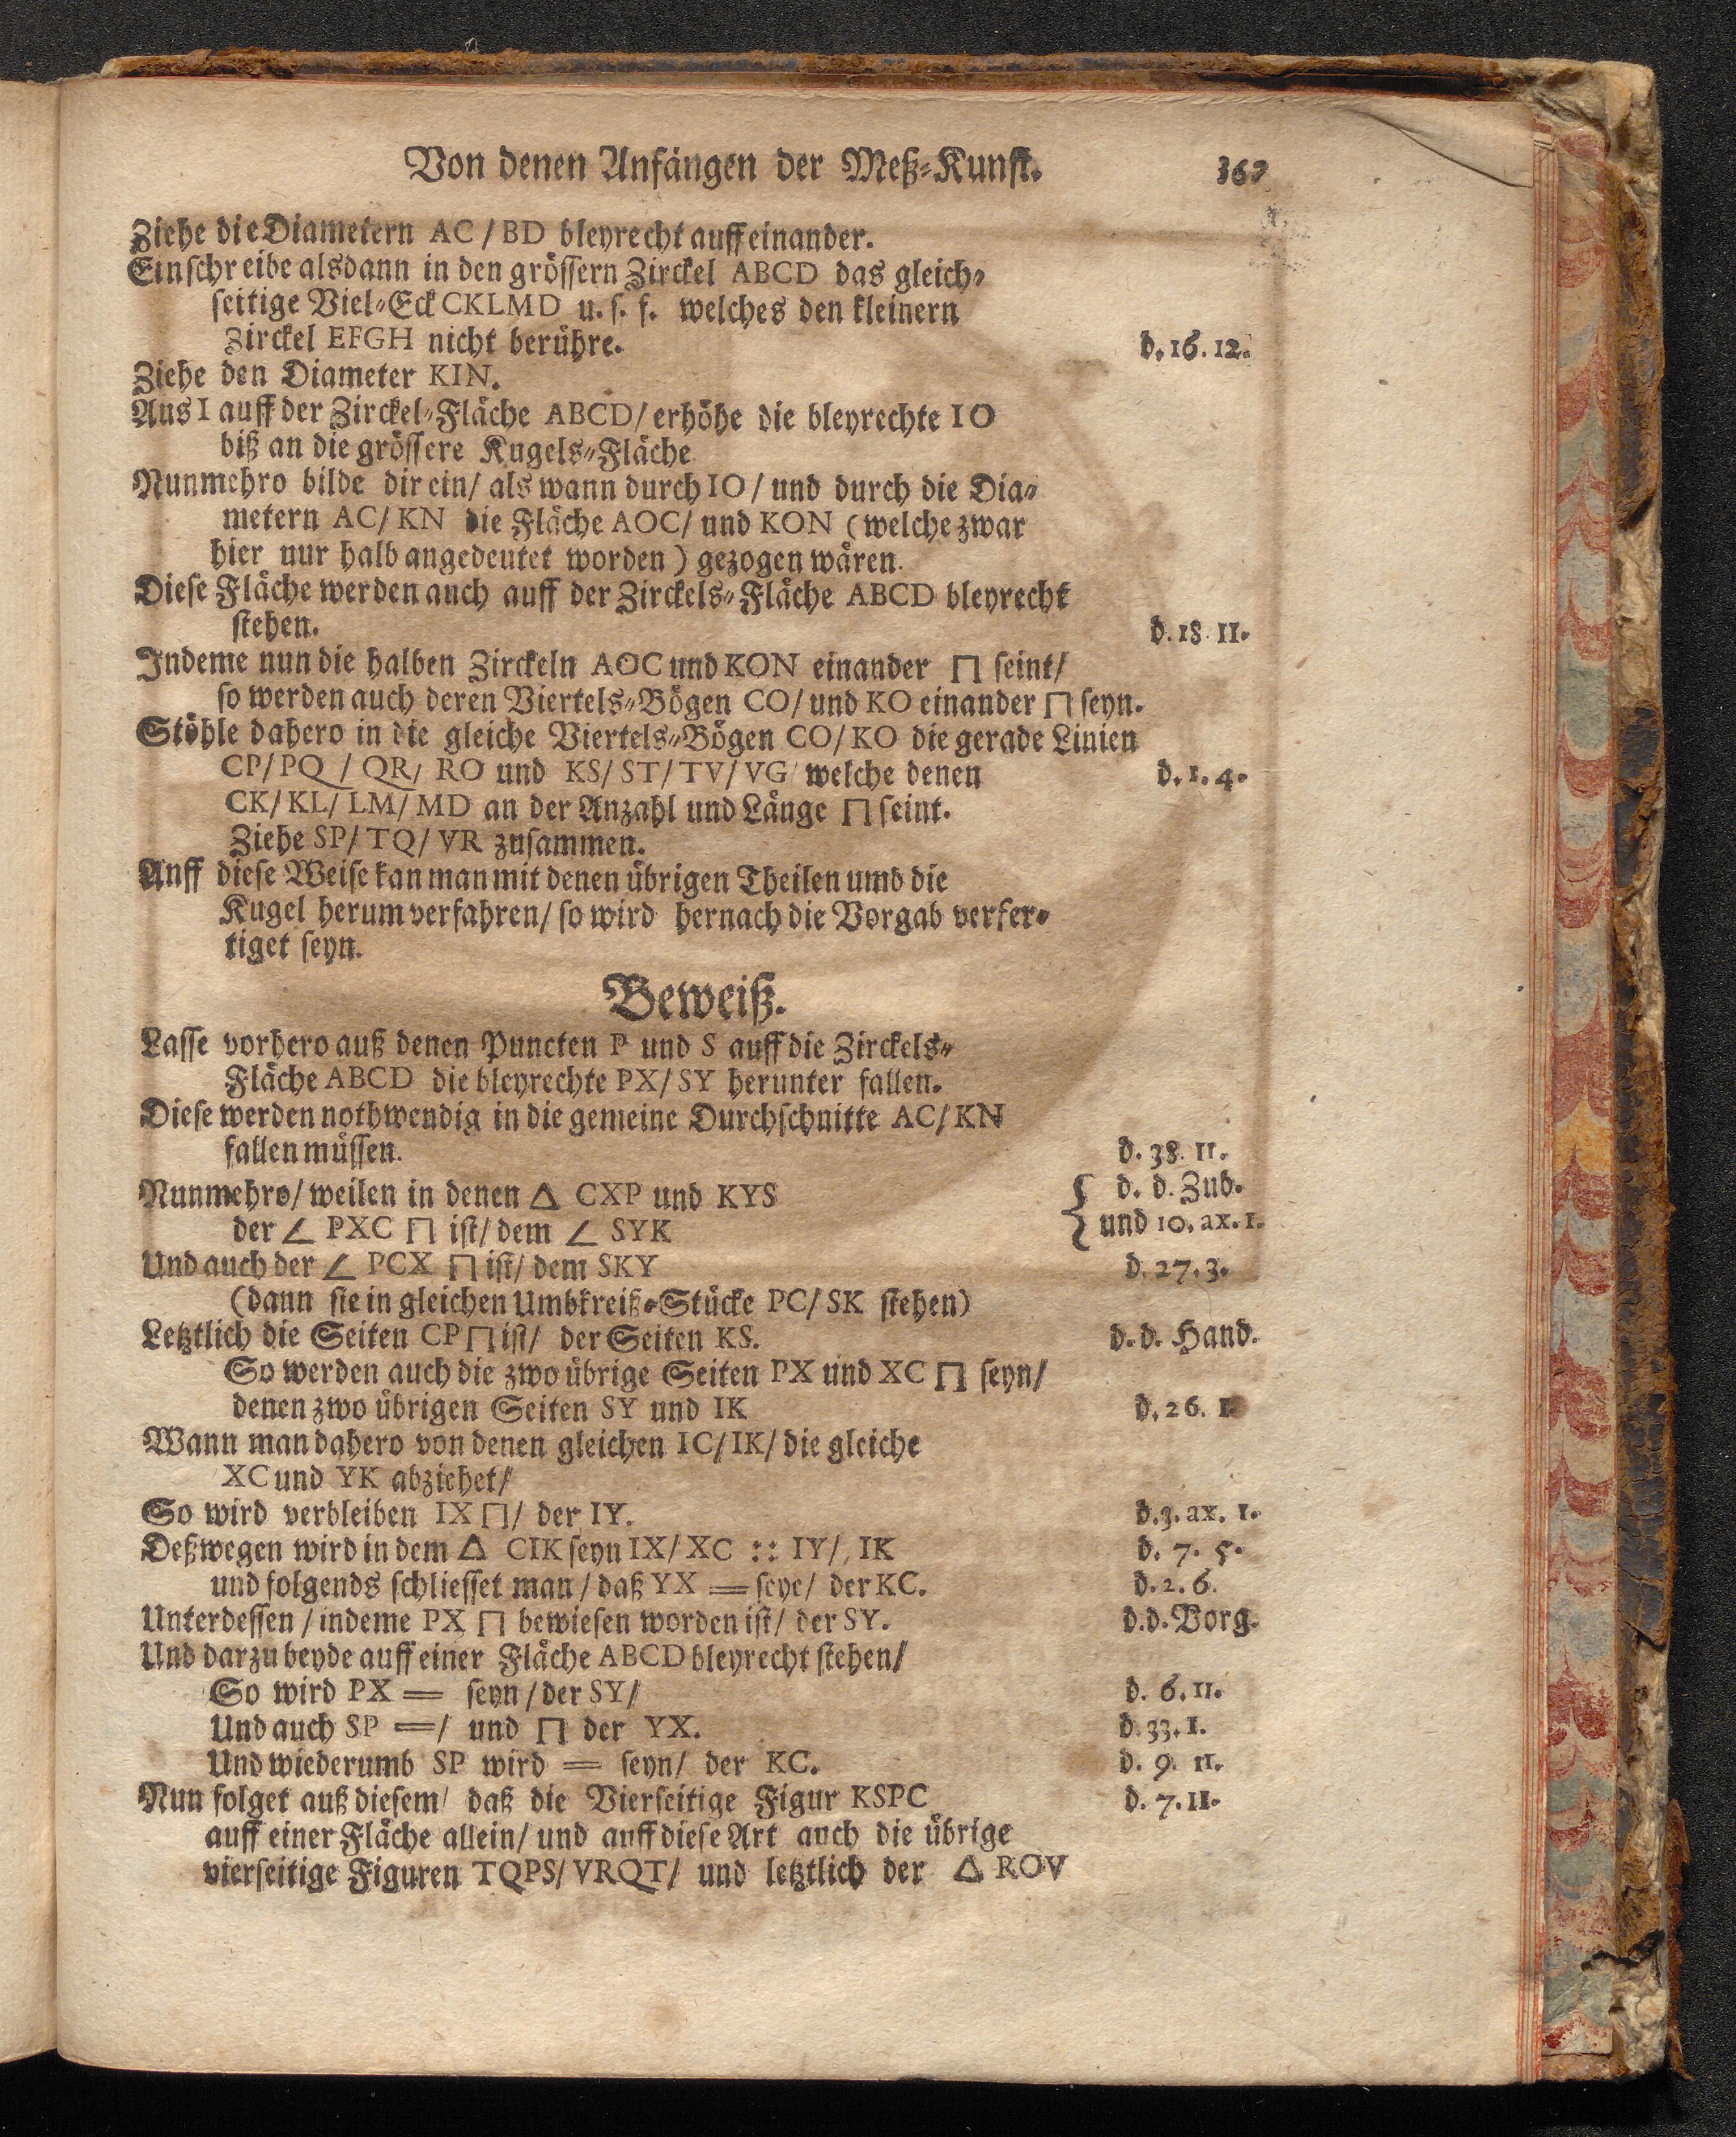 Von denen Anfängen der Meß-Kunst. 367
Ziehe die Diametern AC / BD bleyrecht auff einander.
Einschreibe alsdann in den grössern Zirckel ABCD das gleich-
seitige Viel-Eck CKLMD u. s. f. welches den kleinern
Zirckel EFGH nicht berühre. d. 16. 12.
Ziehe den Diameter KIN.
Aus I auff der Zirckel-Fläche ABCD/ erhöhe die bleyrechte IO
biß an die grössere Kugels-Fläche
Nunmehro bilde dir ein/ als wann durch IO / und durch die Dia-
metern AC/ KN die Fläche AOC/ und KON (welche zwar
hier nur halb angedeutet worden) gezogen wären.
Diese Fläche werden auch auff der Zirckels-Fläche ABCD bleyrecht
stehen. d. 18. 11.
Indeme nun die halben Zirckeln AOC und KON einander ⊓ seint/
so werden auch deren Viertels-Bögen CO/ und KO einander ⊓ seyn.
Stöhle dahero in die gleiche Viertels-Bögen CO/ KO die gerade Linien
CP/ PQ / QR/ RO und KS/ ST/ TV/ VG/ welche denen d. 1. 4.
CK/ KL/ LM/ MD an der Anzahl und Länge ⊓ seint.
Ziehe SP/ TQ/ VR zusammen.
Auff diese Weise kan man mit denen übrigen Theilen umb die
Kugel herum verfahren/ so wird hernach die Vorgab verfer-
tiget seyn.
Beweiß.
Lasse vorhero auß denen Puncten P und S auff die Zirckels-
Fläche ABCD die bleyrechte PX/ SY herunter fallen.
Diese werden nothwendig in die gemeine Durchschnitte AC/ KN
fallen müssen. d. 38. 11.
Nunmehro/ weilen in denen △ CXP und KYS { d. d. Zub.
der ∠ PXC ⊓ ist/ dem ∠ SYK und 10. ax. 1.
Und auch der ∠ PCX ⊓ ist/ dem SKY d. 27. 3.
(dann sie in gleichen Umbkreiß-Stücke PC/ SK stehen)
Letztlich die Seiten CP ⊓ ist/ der Seiten KS. d. d. Hand.
So werden auch die zwo übrige Seiten PX und XC ⊓ seyn/
denen zwo übrigen Seiten SY und IK d. 26. 1.
Wann man dahero von denen gleichen IC/ IK/ die gleiche
XC und YK abziehet/
So wird verbleiben IX ⊓/ der IY. d. 3. ax. 1.
Deßwegen wird in dem △ CIK seyn IX/ XC :: IY/ IK d. 7. 5.
und folgends schliesset man / daß YX = seye/ der KC. d. 2. 6.
Unterdessen / indeme PX ⊓ bewiesen worden ist/ der SY. d. d. Vorg.
Und darzu beyde auff einer Fläche ABCD bleyrecht stehen/
So wird PX = seyn / der SY/ d. 6. 11.
Und auch SP =/ und ⊓ der YX. d. 33. 1.
Und wiederumb SP wird = seyn/ der KC. d. 9. 11.
Nun folget auß diesem/ daß die Vierseitige Figur KSPC d. 7. 11.
auff einer Fläche allein/ und auff diese Art auch die übrige
vierseitige Figuren TQPS/ VRQT/ und letztlich der △ ROV